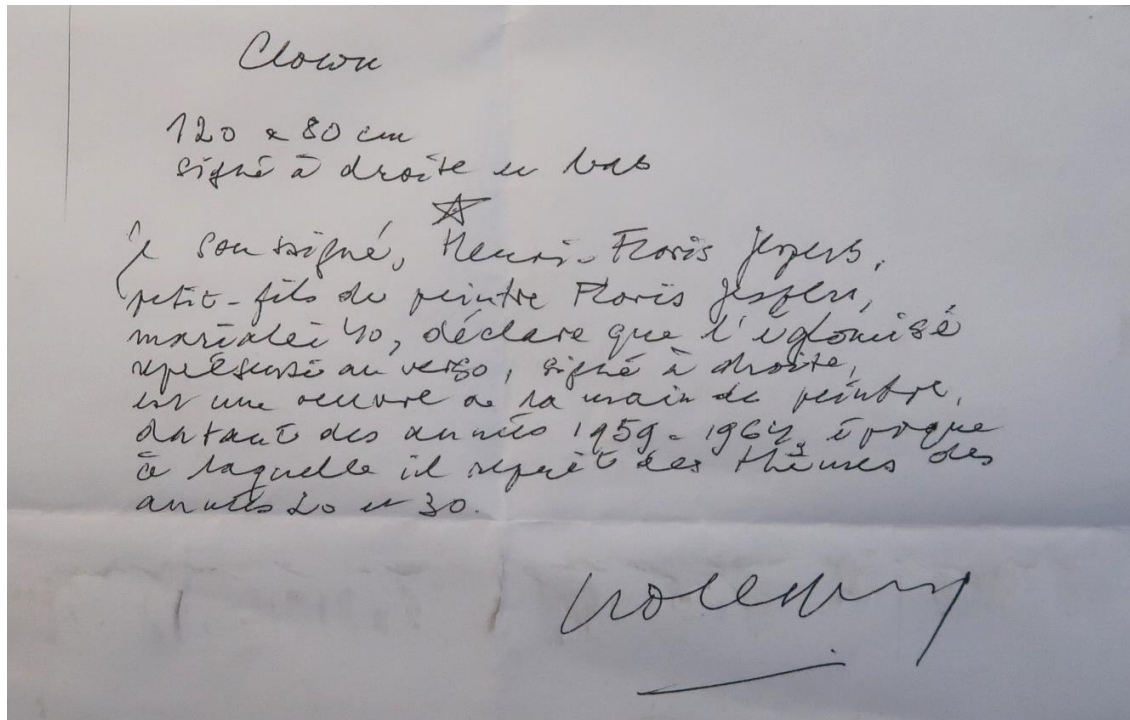 Clown
120 x 80 cm
signé à droite en bas
je soussigné, Henri-Floris Jespers,
petit-fils du peintre Floris Jespers,
déclare que l'églomisé
représenté au verso, signé à droite,
est une oeuvre de la main du peintre,
datant des années 1959-1964, époque
à laquelle il reprit des thèmes des
années 20 et 30.